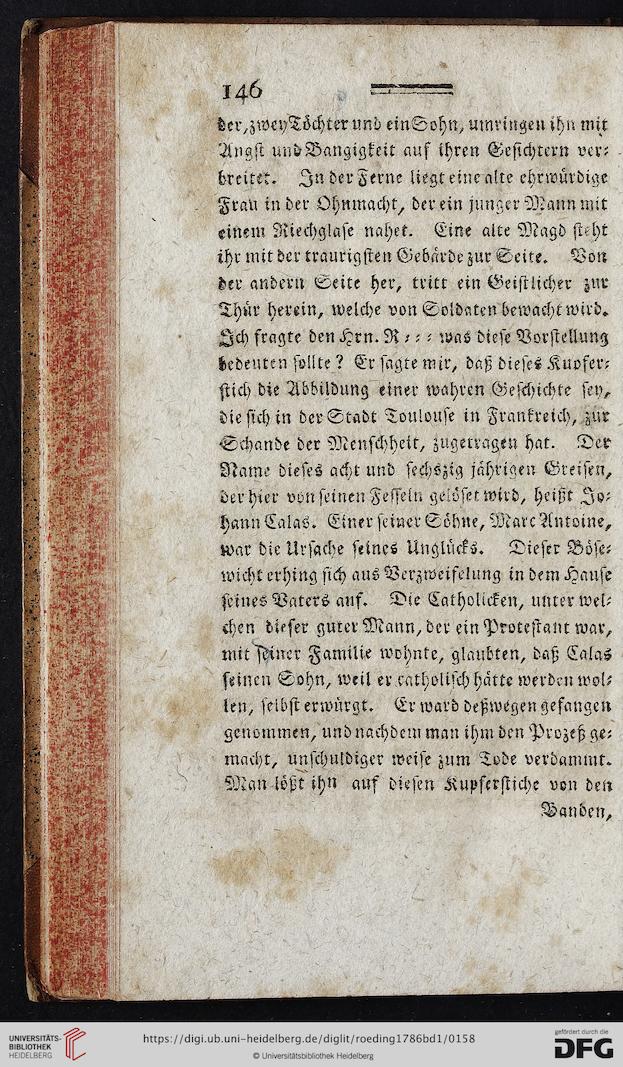 146
der, zwey Töchter und ein Sohn, umringen ihn mit
Angst und Bangigkeit auf ihren Gesichtern ver⸗
breitet. In der Ferne liegt eine alte ehrwürdige
Frau in der Ohnmacht, der ein junger Mann mit
einem Riechglase nahet. Eine alte Magd steht
ihr mit der traurigsten Gebärde zur Seite. Von
der andern Seite her, tritt ein Geistlicher zur
Thür herein, welche von Soldaten bewacht wird.
Ich fragte den Hrn. R⸗⸗⸗ was diese Vorstellung
bedeuten sollte? Er sagte mir, daß dieses Kupfer⸗
stich die Abbildung einer wahren Geschichte sey,
die sich in der Stadt Toulouse in Frankreich, zur
Schande der Menschheit, zugetragen hat. Der
Name dieses acht und sechszig jährigen Greisen,
der hier von seinen Fesseln gelöset wird, heißt Jo⸗
hann Calas. Einer seiner Söhne, Marc Antoine,
war die Ursache seines Unglücks. Dieser Böse⸗
wicht erhing sich aus Verzweifelung in dem Hause
seines Vaters auf. Die Catholicken, unter wel⸗
chen dieser guter Mann, der ein Protestant war,
mit seiner Familie wohnte, glaubten, daß Calas
seinen Sohn, weil er catholisch hätte werden wol⸗
len, selbst erwürgt. Er ward deßwegen gefangen
genommen, und nachdem man ihm den Prozeß ge⸗
macht, unschuldiger weise zum Tode verdammt.
Man lößt ihn auf diesen Kupferstiche von den
Banden,
UNIVERSITÄTS-
BIBLIOTHEK
HEIDELBERG
https://digi.ub.uni-heidelberg.de/diglit/roeding1786bd1/0158
© Universitätsbibliothek Heidelberg
gefördert durch die
DFG